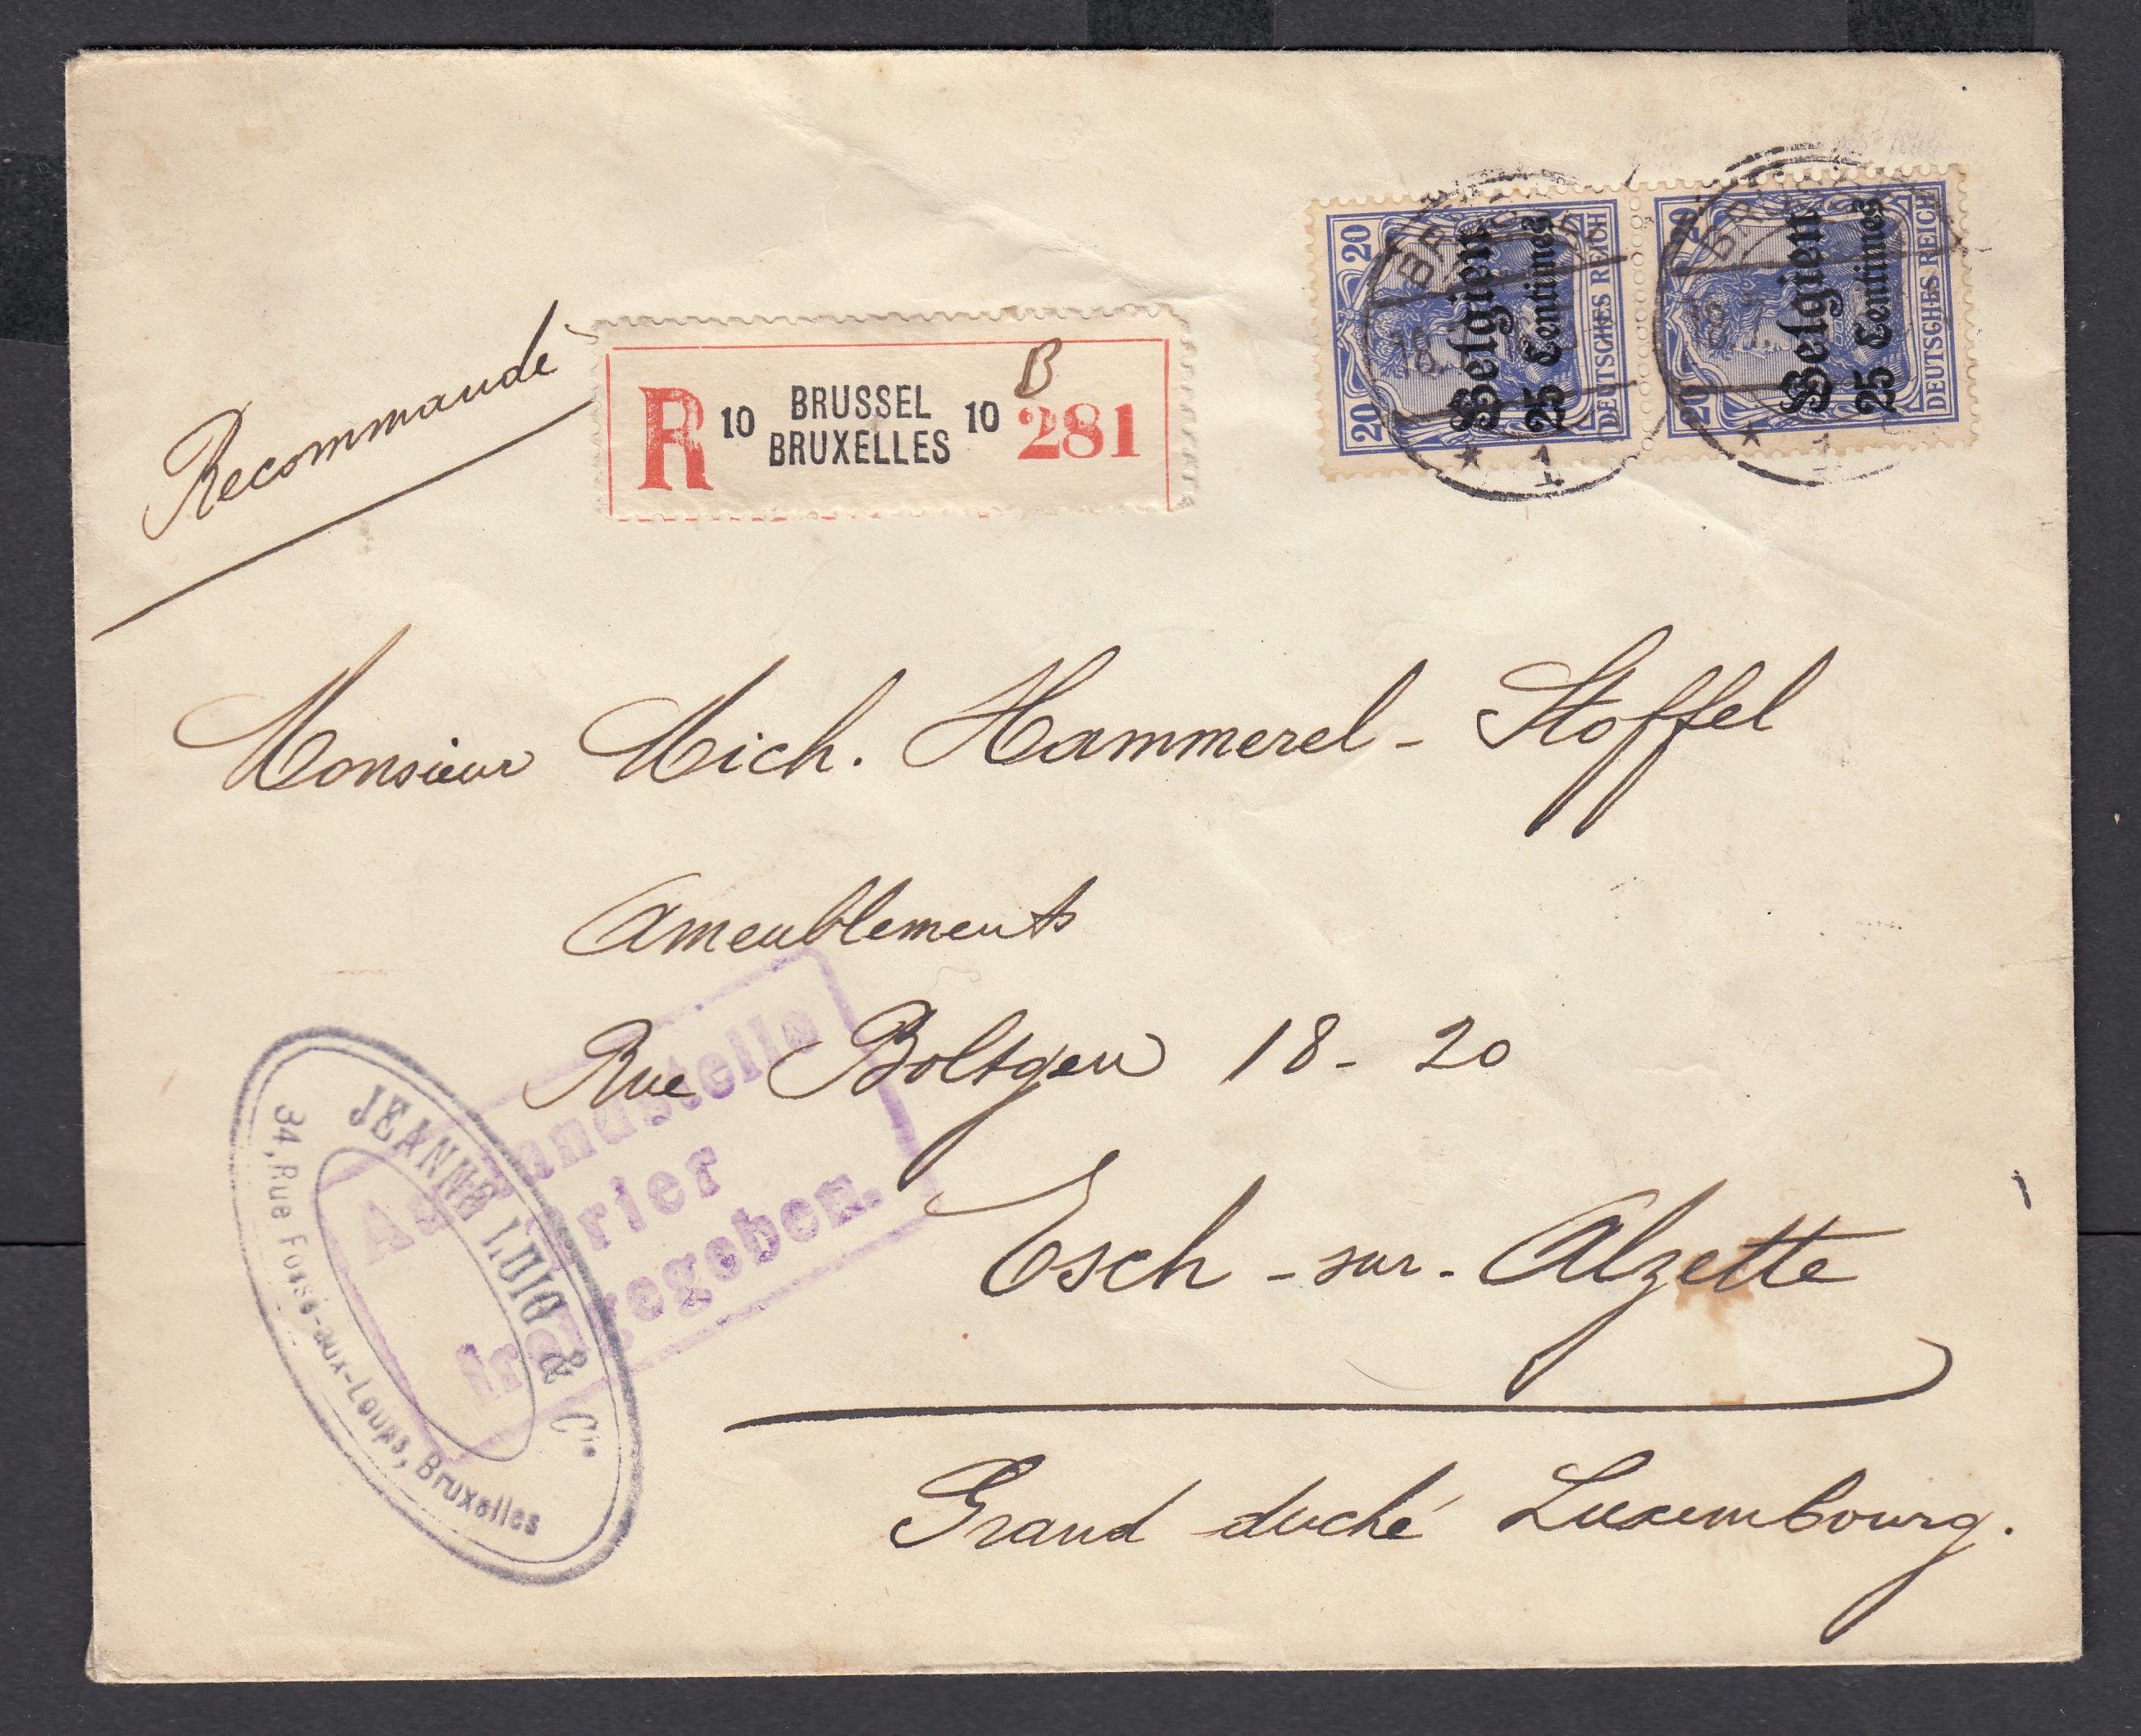 Recommandé
R 10 BRUSSEL BRUXELLES 10 B 281
20 20 DEUTSCHES REICH
Belgien
25 Centimes
20 20 DEUTSCHES REICH
Belgien
25 Centimes
18.
18.7.
* 1
* 1
Monsieur Mich. Hammerel - Stoffel
Ameublements
Rue Boltgen 18 - 20
Esch - sur - Alzette
Grand duché Luxembourg.
Trier
freigegeben.
JEANNE & Cie
34, Rue Fossé-aux-Loups, Bruxelles